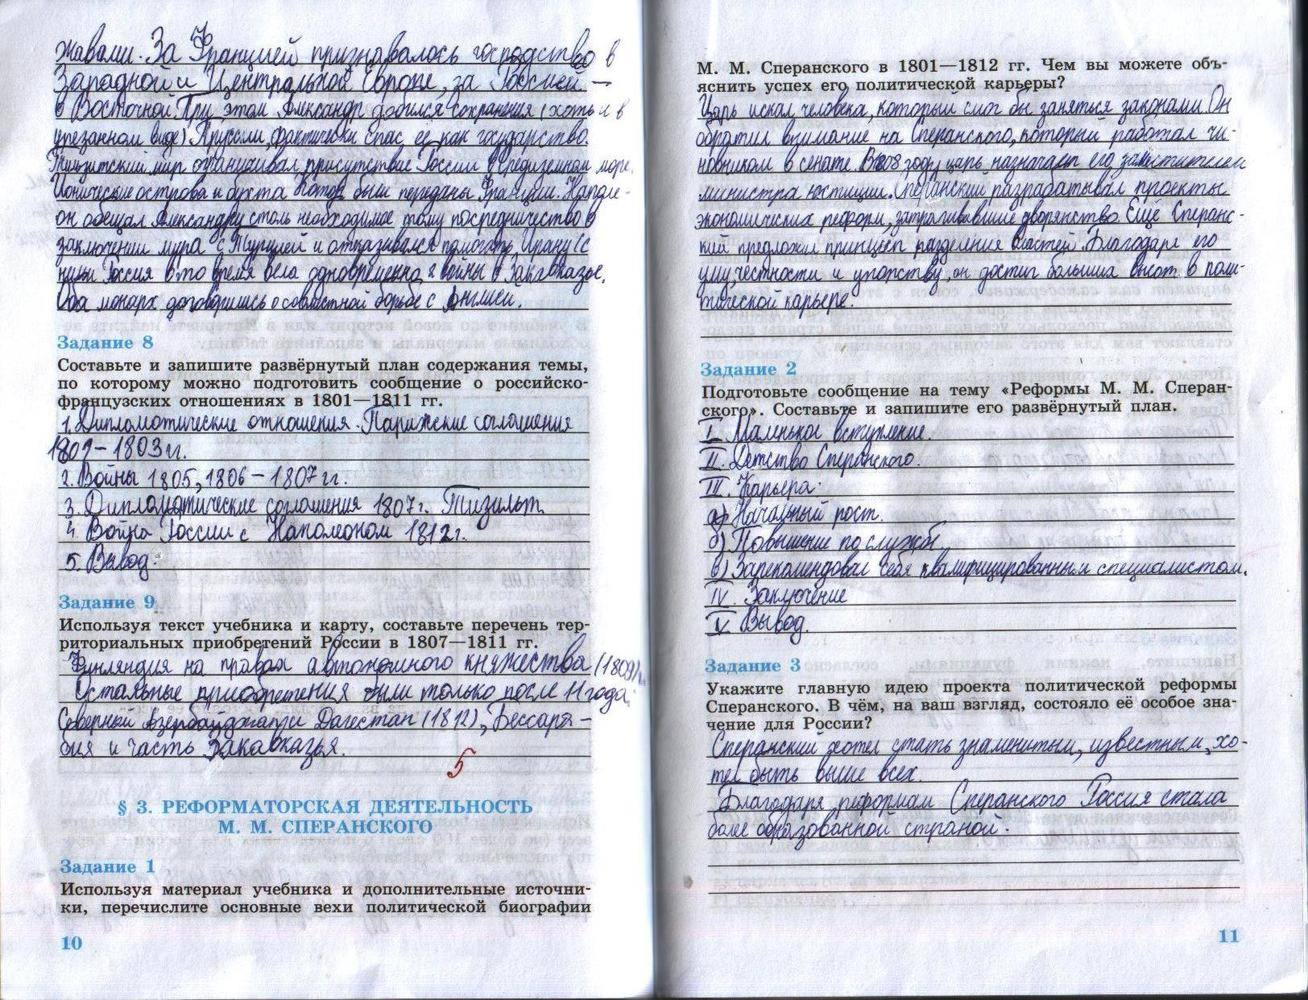 жавами. За Францией признавалось господство в
Западной и Центральной Европе, за Россией —
в Восточной. При этом Александр добился сохранения (хоть и в
урезанном виде) Пруссии, фактически спас её как государство.
Тильзитский мир ограничивал присутствие России в Средиземном море.
Ионические острова и бухта Котор были переданы Франции. Наполе-
он обещал Александру столь необходимое тому посредничество в
заключении мира с Турцией и отказывался помогать Ирану (с
ними Россия в то время вела одновременно 2 войны в Закавказье.
Оба монарх. договорились о совместной борьбе с Англией.
Задание 8
Составьте и запишите развёрнутый план содержания темы,
по которому можно подготовить сообщение о российско-
французских отношениях в 1801—1811 гг.
1. Дипломатические отношения. Парижские соглашения
1801-1803 гг.
2. Войны 1805, 1806-1807 гг.
3. Дипломатические соглашения 1807 г. Тизильт.
4. Война России с Наполеоном 1812 г.
5. Вывод.
Задание 9
Используя текст учебника и карту, составьте перечень тер-
риториальных приобретений России в 1807—1811 гг.
Финляндия на правах автономного княжества (1809)
Остальные приобретения были только после 11 года:
Северный Азербайджан и Дагестан (1812), Бессара-
бия и часть Закавказья.
5
§ 3. РЕФОРМАТОРСКАЯ ДЕЯТЕЛЬНОСТЬ
М. М. СПЕРАНСКОГО
Задание 1
Используя материал учебника и дополнительные источни-
ки, перечислите основные вехи политической биографии
10
М. М. Сперанского в 1801—1812 гг. Чем вы можете объ-
яснить успех его политической карьеры?
Царь искал человека, который смог бы заняться законами. Он
обратил внимание на Сперанского, который работал чи-
новником в сенате. В 1808 году царь назначает его заместителем
министра юстиции. Сперанский разрабатывал проекты
экономических реформ, затрагивавшие дворянство. Ещё Сперанс-
кий предложил принцип разделения властей. Благодаря его
уму, честности и упорству, он достиг больших высот в поли-
тической карьере.
Задание 2
Подготовьте сообщение на тему «Реформы М. М. Сперан-
ского». Составьте и запишите его развёрнутый план.
I. Маленькое вступление.
II. Детство Сперанского.
III. Карьера.
а) Начальный рост.
б) Повышение по службе.
в) Зарекомендовал себя квалифицированным специалистом.
IV. Заключение
V. Вывод.
Задание 3
Укажите главную идею проекта политической реформы
Сперанского. В чём, на ваш взгляд, состояло её особое зна-
чение для России?
Сперанский хотел стать знаменитым, известным, хо-
тел быть выше всех.
Благодаря реформам Сперанского Россия стала
более образованной страной.
11